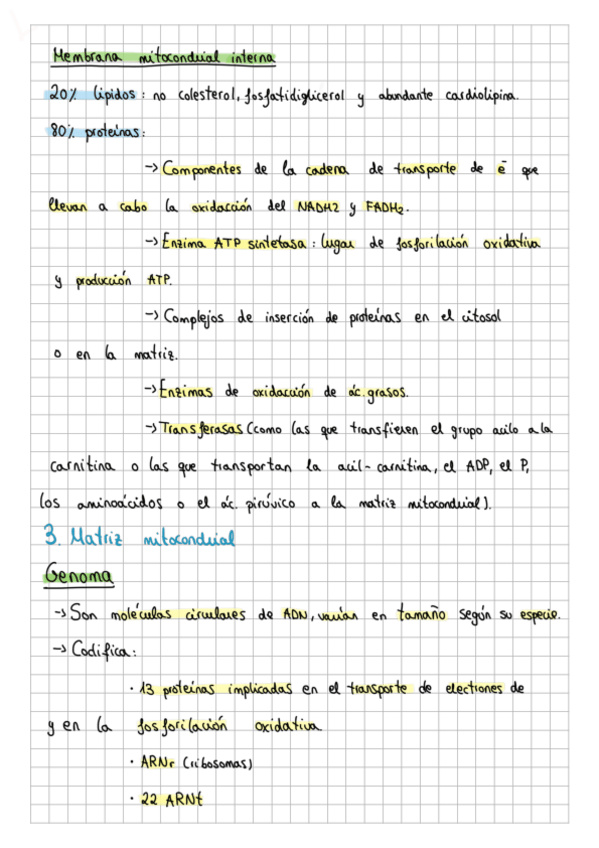 Membrana mitocondrial interna
20% lípidos: no colesterol, fosfatidiglicerol y abundante cardiolipina.
80% proteínas:
-> Componentes de la cadena de transporte de ē que
llevan a cabo la oxidacción del NADH2 y FADH2.
-> Enzima ATP sintetasa: lugar de fosforilación oxidativa
y producción ATP.
-> Complejos de inserción de proteínas en el citosol
o en la matriz.
-> Enzimas de oxidacción de ác. grasos.
-> Transferasas (como las que transfieren el grupo acilo a la
carnitina o las que transportan la acil-carnitina, el ADP, el P,
los aminoácidos o el ác. pirúvico a la matriz mitocondrial).
3. Matriz mitocondrial
Genoma
-> Son moléculas circulares de ADN, varían en tamaño según su especie.
-> Codifica:
· 13 proteínas implicadas en el transporte de electrones de
y en la fosforilación oxidativa.
· ARNr (ribosomas)
· 22 ARNt